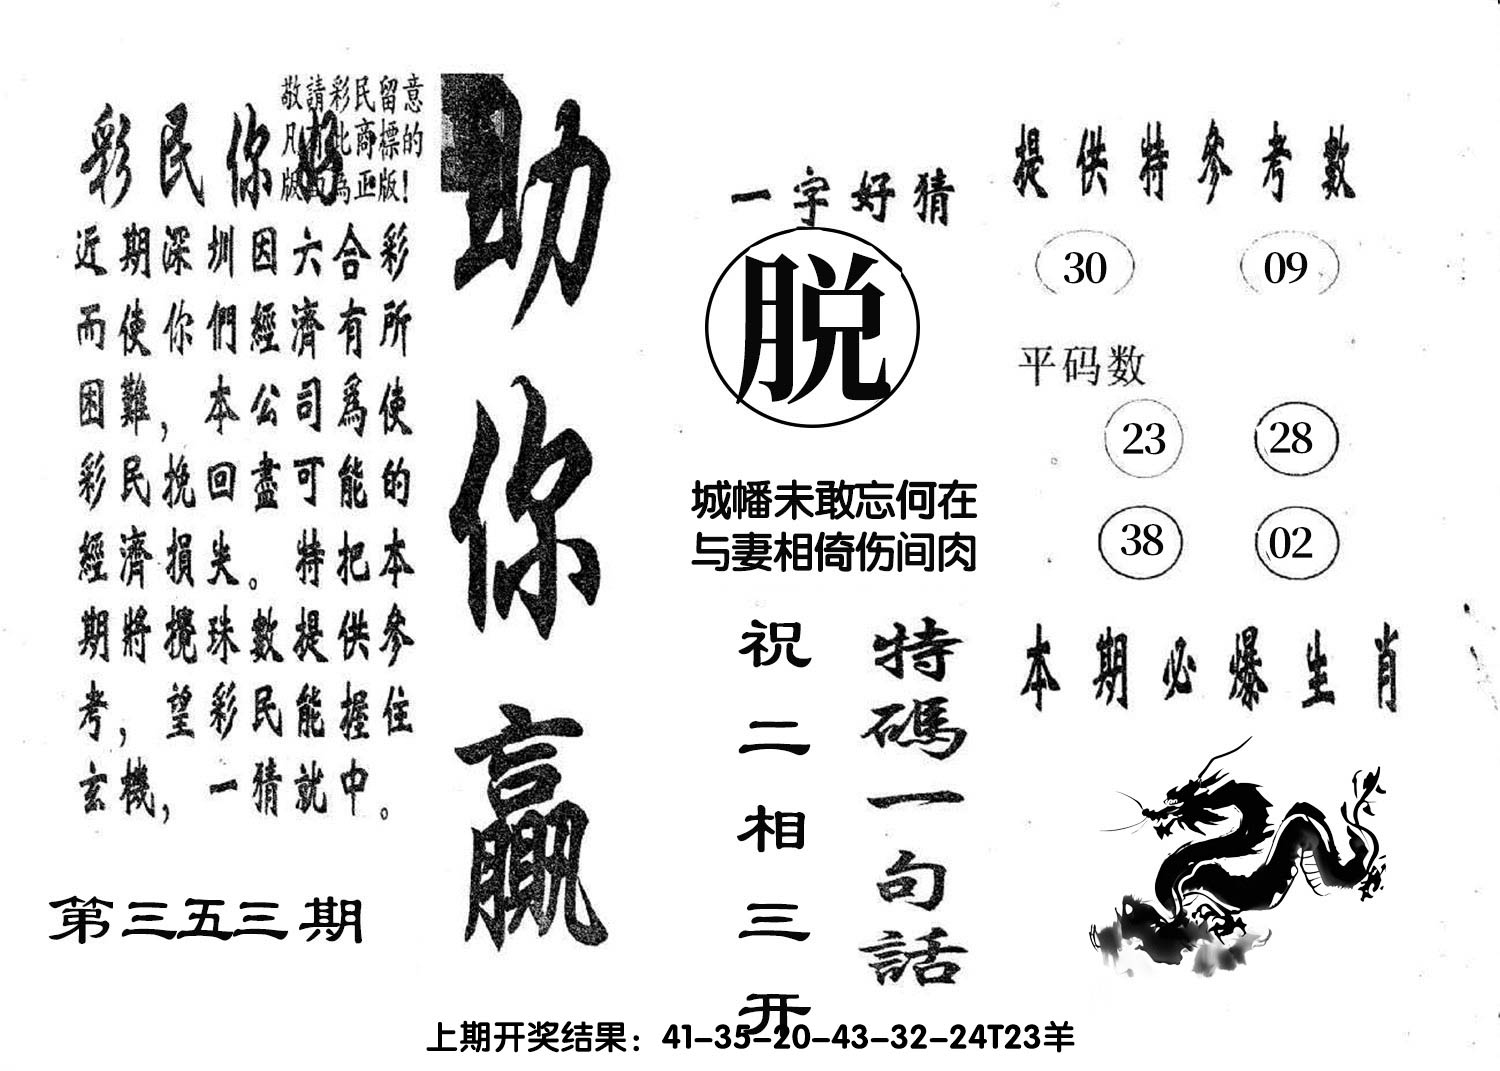 敬請彩民留意
凡有此商標的
版面為正版！
彩民你好
近期深圳因六合彩
而使你們經濟有所
困難，本公司爲使
彩民挽回盡可能的
經濟損失。特把本
期將攪珠數提供參
考，望彩民能握住
玄機，一猜就中。
第三五三期
助你贏
一字好猜
脱
城幡未敢忘何在
与妻相倚伤间肉
特碼一句話
祝二相三开
提供特參考數
30 09
平码数
23 28
38 02
本期必爆生肖
上期开奖结果：41-35-20-43-32-24T23羊